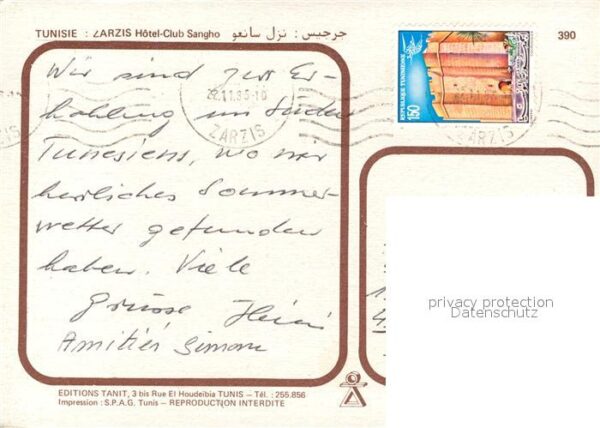 TUNISIE : ZARZIS Hôtel-Club Sangho جرجيس : نزل سانغو
390
REPUBLIQUE TUNISIENNE
150
22.11.85-16
ZARZIS
Wir sind zur Er-
hohlung im Süden
Tunesiens, wo wir
herrliches Sommer-
wetter gefunden
haben. Viele
Grüsse Heini
Amitiés Simone
privacy protection
Datenschutz
EDITIONS TANIT, 3 bis Rue El Houdeïbia TUNIS – Tél. : 255.856
Impression : S.P.A.G. Tunis – REPRODUCTION INTERDITE